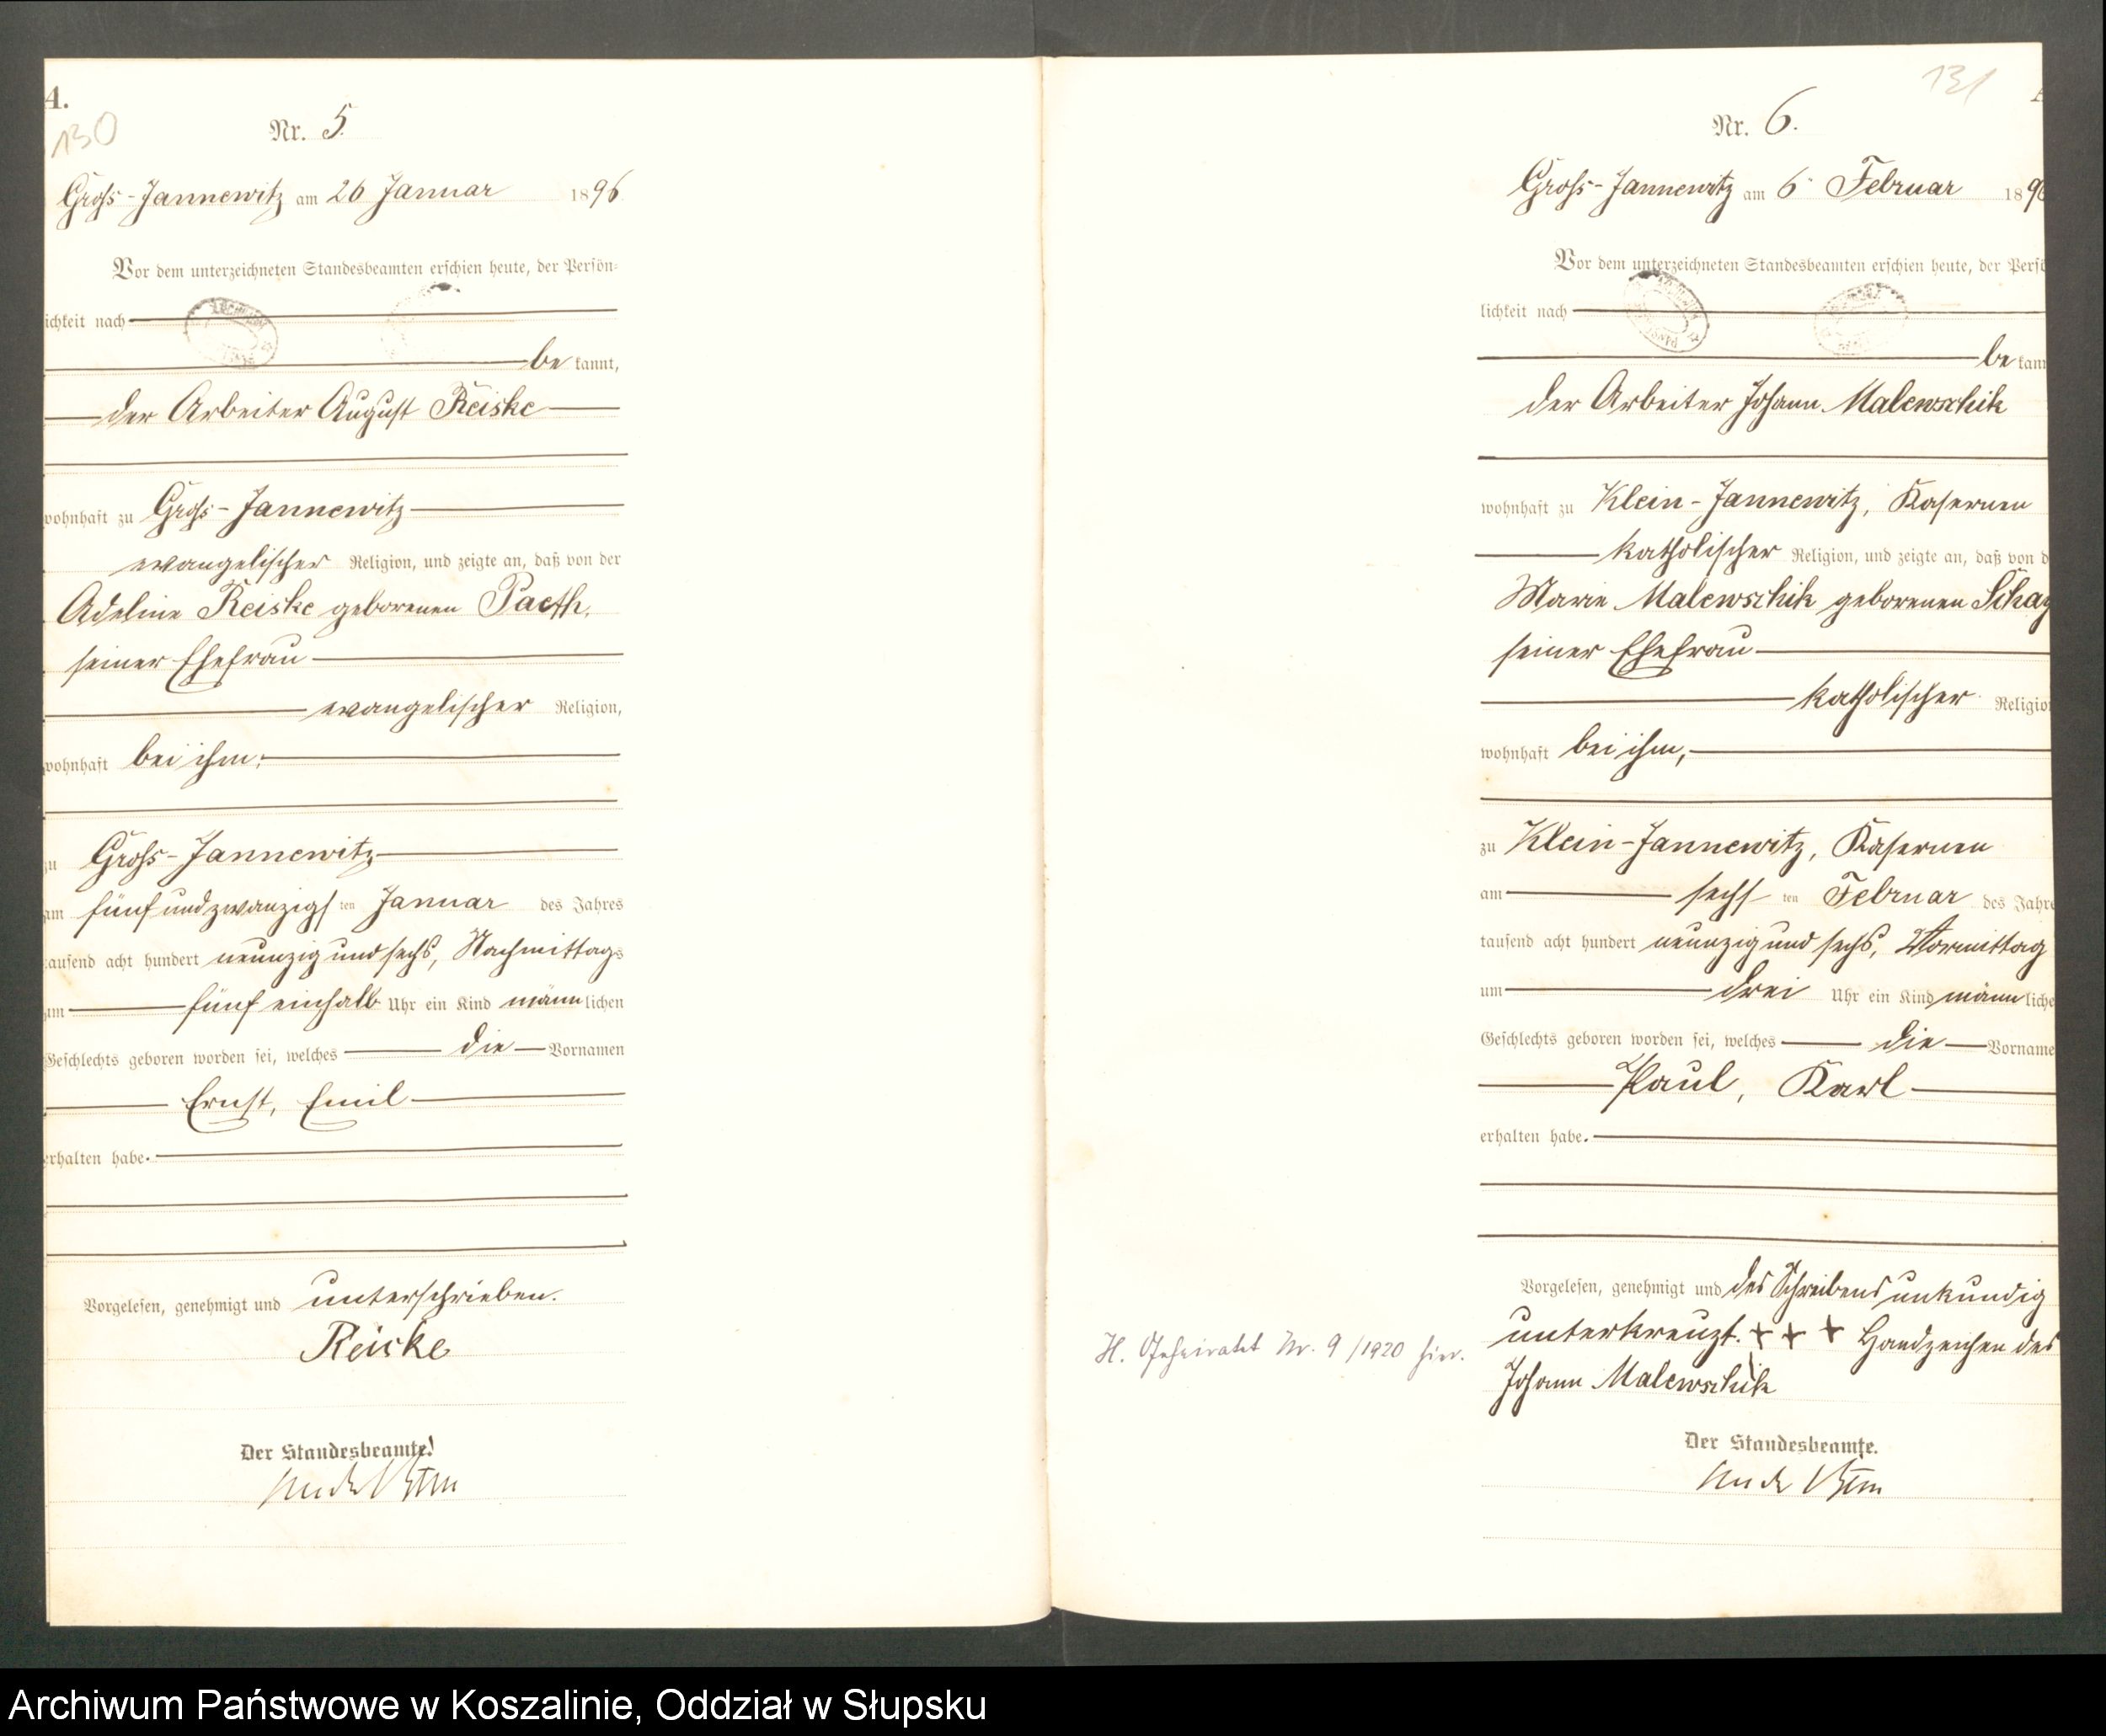 A.
130
Nr. 5.
Groß-Jannewitz am 26 Januar 1896
Vor dem unterzeichneten Standesbeamten erschien heute, der Persön-
lichkeit nach
be kannt,
der Arbeiter August Reiske
wohnhaft zu Groß-Jannewitz
evangelischer Religion, und zeigte an, daß von der
Adeline Reiske geborenen Paeth,
seiner Ehefrau
evangelischer Religion,
wohnhaft bei ihm,
zu Groß-Jannewitz
am fünf und zwanzigsten Januar des Jahres
tausend acht hundert neunzig und sechs, Nachmittags
um fünf einhalb Uhr ein Kind männlichen
Geschlechts geboren worden sei, welches die Vornamen
Ernst, Emil
erhalten habe.
Vorgelesen, genehmigt und unterschrieben.
Reiske
Der Standesbeamte.
131
Nr. 6.
Groß-Jannewitz am 6 Februar 1896
Vor dem unterzeichneten Standesbeamten erschien heute, der Persö
lichkeit nach
be kann
der Arbeiter Johann Malewschik
wohnhaft zu Klein-Jannewitz, Kasernen
katholischer Religion, und zeigte an, daß von d
Marie Malewschik geborenen
seiner Ehefrau
katholischer Religion
wohnhaft bei ihm,
zu Klein-Jannewitz, Kasernen
am sechsten Februar des Jahre
tausend acht hundert neunzig und sechs, Vormittag
um drei Uhr ein Kind männliche
Geschlechts geboren worden sei, welches die Vorname
Paul, Karl
erhalten habe.
Vorgelesen, genehmigt und des Schreibens unkundig
unterkreuzt. + + + Handzeichen des
Johann Malewschik
H. Geheiratet Nr. 9/1920 hier.
Der Standesbeamte.
Archiwum Państwowe w Koszalinie, Oddział w Słupsku